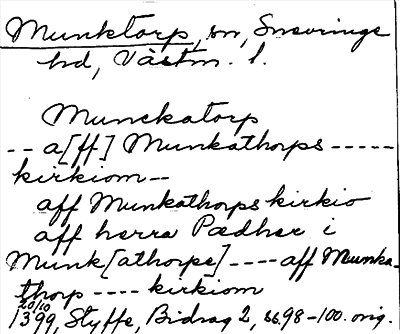 Munktorp, sn, Snevringe
hd, Västm. l.
Munckatorp
-- a[ff] Munkathorps -----
kirkiom--
aff Munkathorps kirkio
aff herra Pædher i
Munk[athorpe] ---- aff Munka-
thorp ---- kirkiom
20/10
1399, Styffe, Bidrag 2, ss. 98-100. orig.